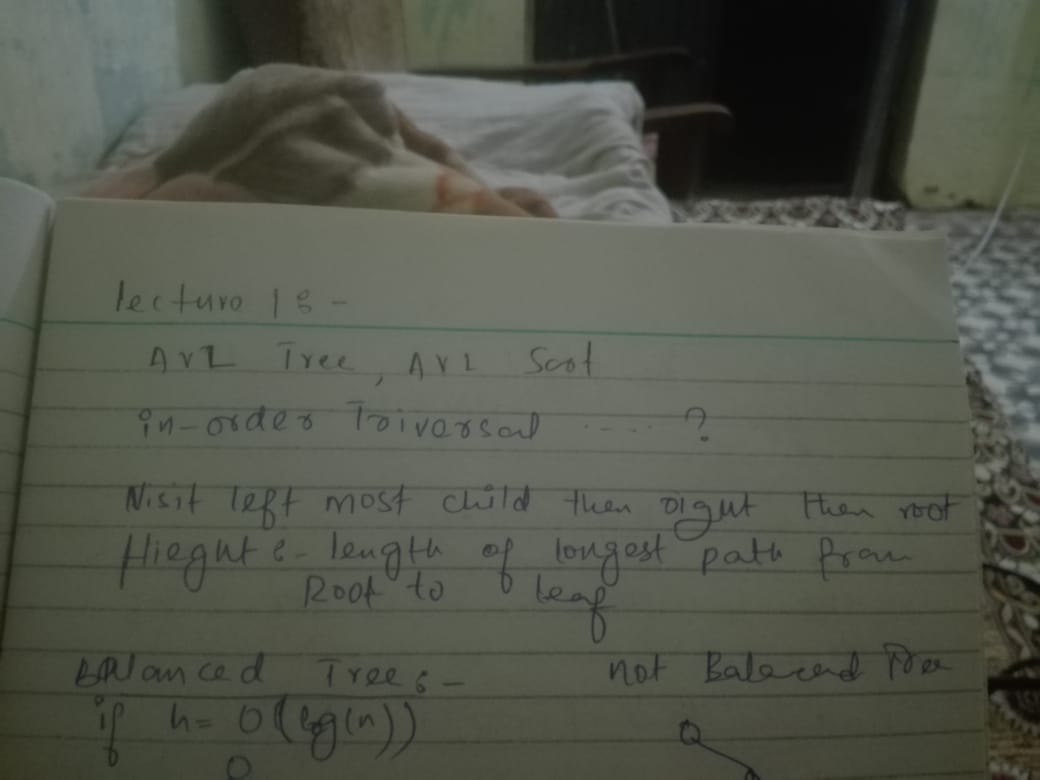 lecture 18 -
AVL Tree, AVL Soot
in-order Toiversal ..... ?
Visit left most child then right then root
Hieght :- length of longest path from
Root to leaf
Balanced Tree :-
not Balanced Tree
if h = O(log(n))